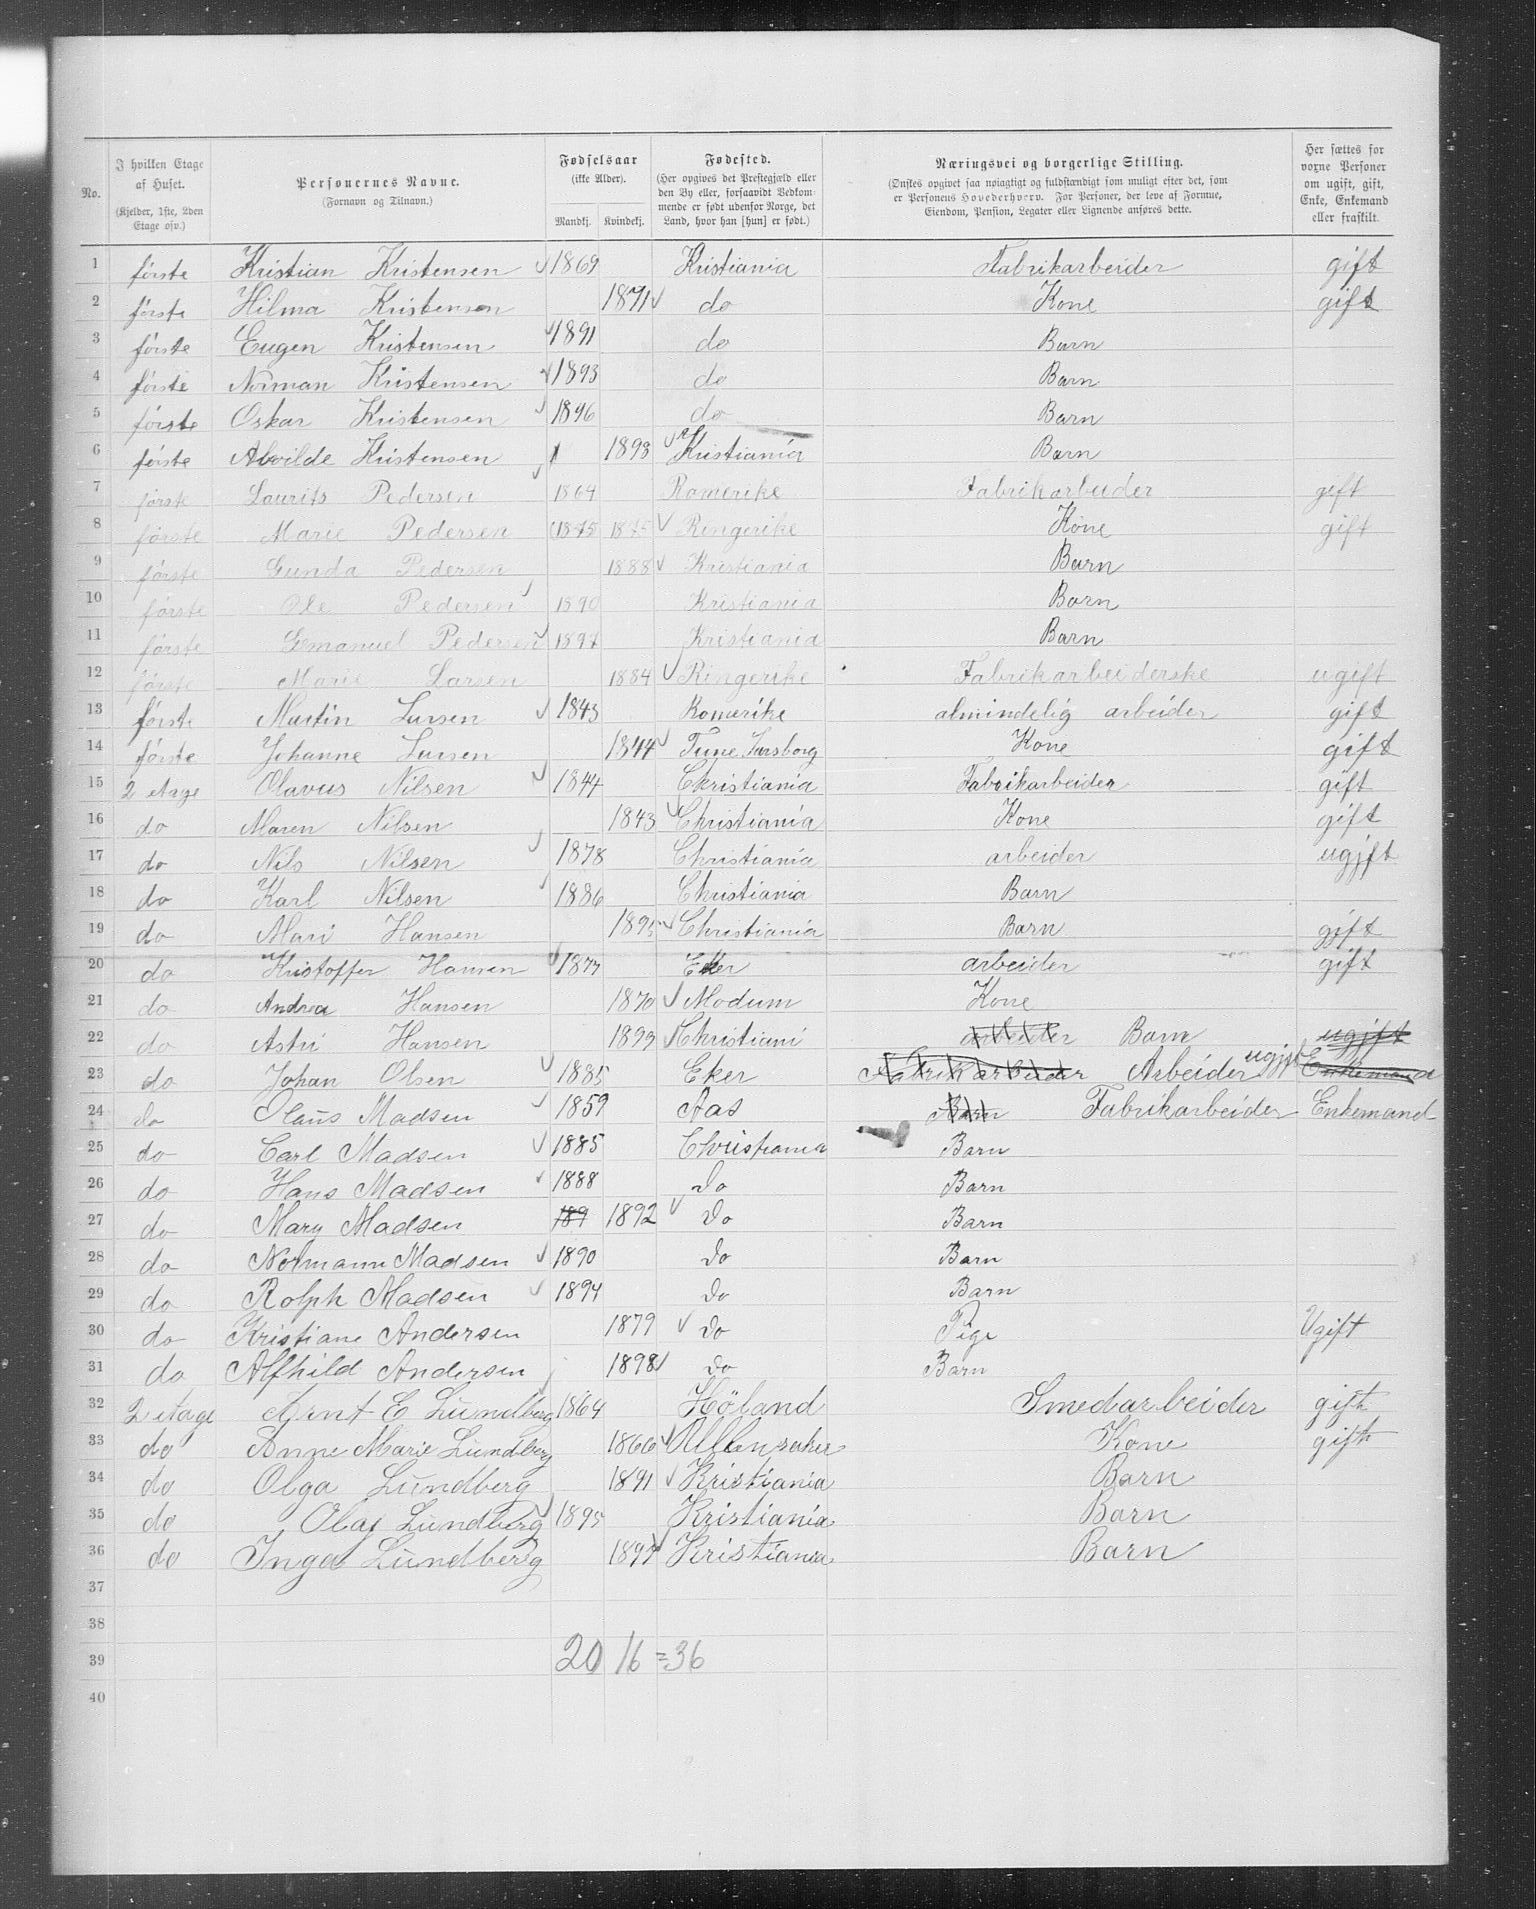 No. | I hvilken Etage af Huset. (Kjelder, 1ste, 2den Etage osv.) | Personernes Navne. (Fornavn og Tilnavn.) | Fødselsaar (ikke Alder). Mandkj. | Kvindekj. | Fødested. (Her opgives det Prestegjæld eller den By eller, forsaavidt Vedkommende er født udenfor Norge, det Land, hvor han [hun] er født.) | Næringsvei og borgerlige Stilling. (Ønskes opgivet saa nøiagtigt og fuldstændigt som muligt efter det, som er Personens Hovederhverv. For Personer, der leve af Formue, Eiendom, Pension, Legater eller Lignende anføres dette.) | Her sættes for vorne Personer om ugift, gift, Enke, Enkemand eller fraskilt.
1 første Kristian Kristensen 1869 Kristiania Fabrikarbeider gift
2 første Hilma Kristensen 1871 do Kone gift
3 første Eugen Kristensen 1891 do Barn
4 første Norman Kristensen 1893 do Barn
5 første Oskar Kristensen 1896 do Barn
6 første Alvilde Kristensen 1898 Kristiania Barn
7 første Laurits Pedersen 1864 Romerike Fabrikarbeider gift
8 første Marie Pedersen 1875 1875 Ringerike Kone gift
9 første Gunda Pedersen 1888 Kristiania Barn
10 første Ole Pedersen 1890 Kristiania Barn
11 første Emanuel Pedersen 1897 Kristiania Barn
12 første Marie Larsen 1884 Ringerike Fabrikarbeiderske ugift
13 første Martin Larsen 1843 Romerike almindelig arbeider gift
14 første Johanne Larsen 1844 Tune Sarsborg Kone gift
15 2 etage Olavus Nilsen 1844 Christiania Fabrikarbeider gift
16 do Maren Nilsen 1843 Christiania Kone gift
17 do Nils Nilsen 1878 Christiania arbeider ugift
18 do Karl Nilsen 1886 Christiania Barn
19 do Mari Hansen 1895 Christiania Barn gift
20 do Kristoffer Hansen 1877 Eker arbeider gift
21 do Andrea Hansen 1870 Modum Kone
22 do Astri Hansen 1899 Christiani arbeider Barn ugift
23 do Johan Olsen 1885 Eker Fabrikarbeider Arbeider ugift Enkemand
24 do Claus Madsen 1859 Aas Barn Fabrikarbeider Enkemand
25 do Carl Madsen 1885 Christiania Barn
26 do Hans Madsen 1888 Do Barn
27 do Mary Madsen 189 1892 Do Barn
28 do Normann Madsen 1890 Do Barn
29 do Rolph Madsen 1894 Do Barn
30 do Kristiane Andersen 1879 Do Pige Ugift
31 do Alfhild Andersen 1898 Do Barn
32 2 etage Arnt E Lundberg 1864 Höland Smedarbeider gift
33 do Anne Marie Lundberg 1866 Ullensaker Kone gift
34 do Olga Lundberg 1891 Kristiania Barn
35 do Olaf Lundberg 1895 Kristiania Barn
36 do Inga Lundberg 1897 Kristiania Barn
37
38
39 20 16 = 36
40